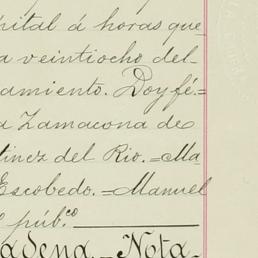 pital á horas que
a veintiocho del
amiento. Doy fé=
a Zamacona de
tinez del Rio.=Ma
Escobedo.=Manuel
púb.co
adena.=Nota.